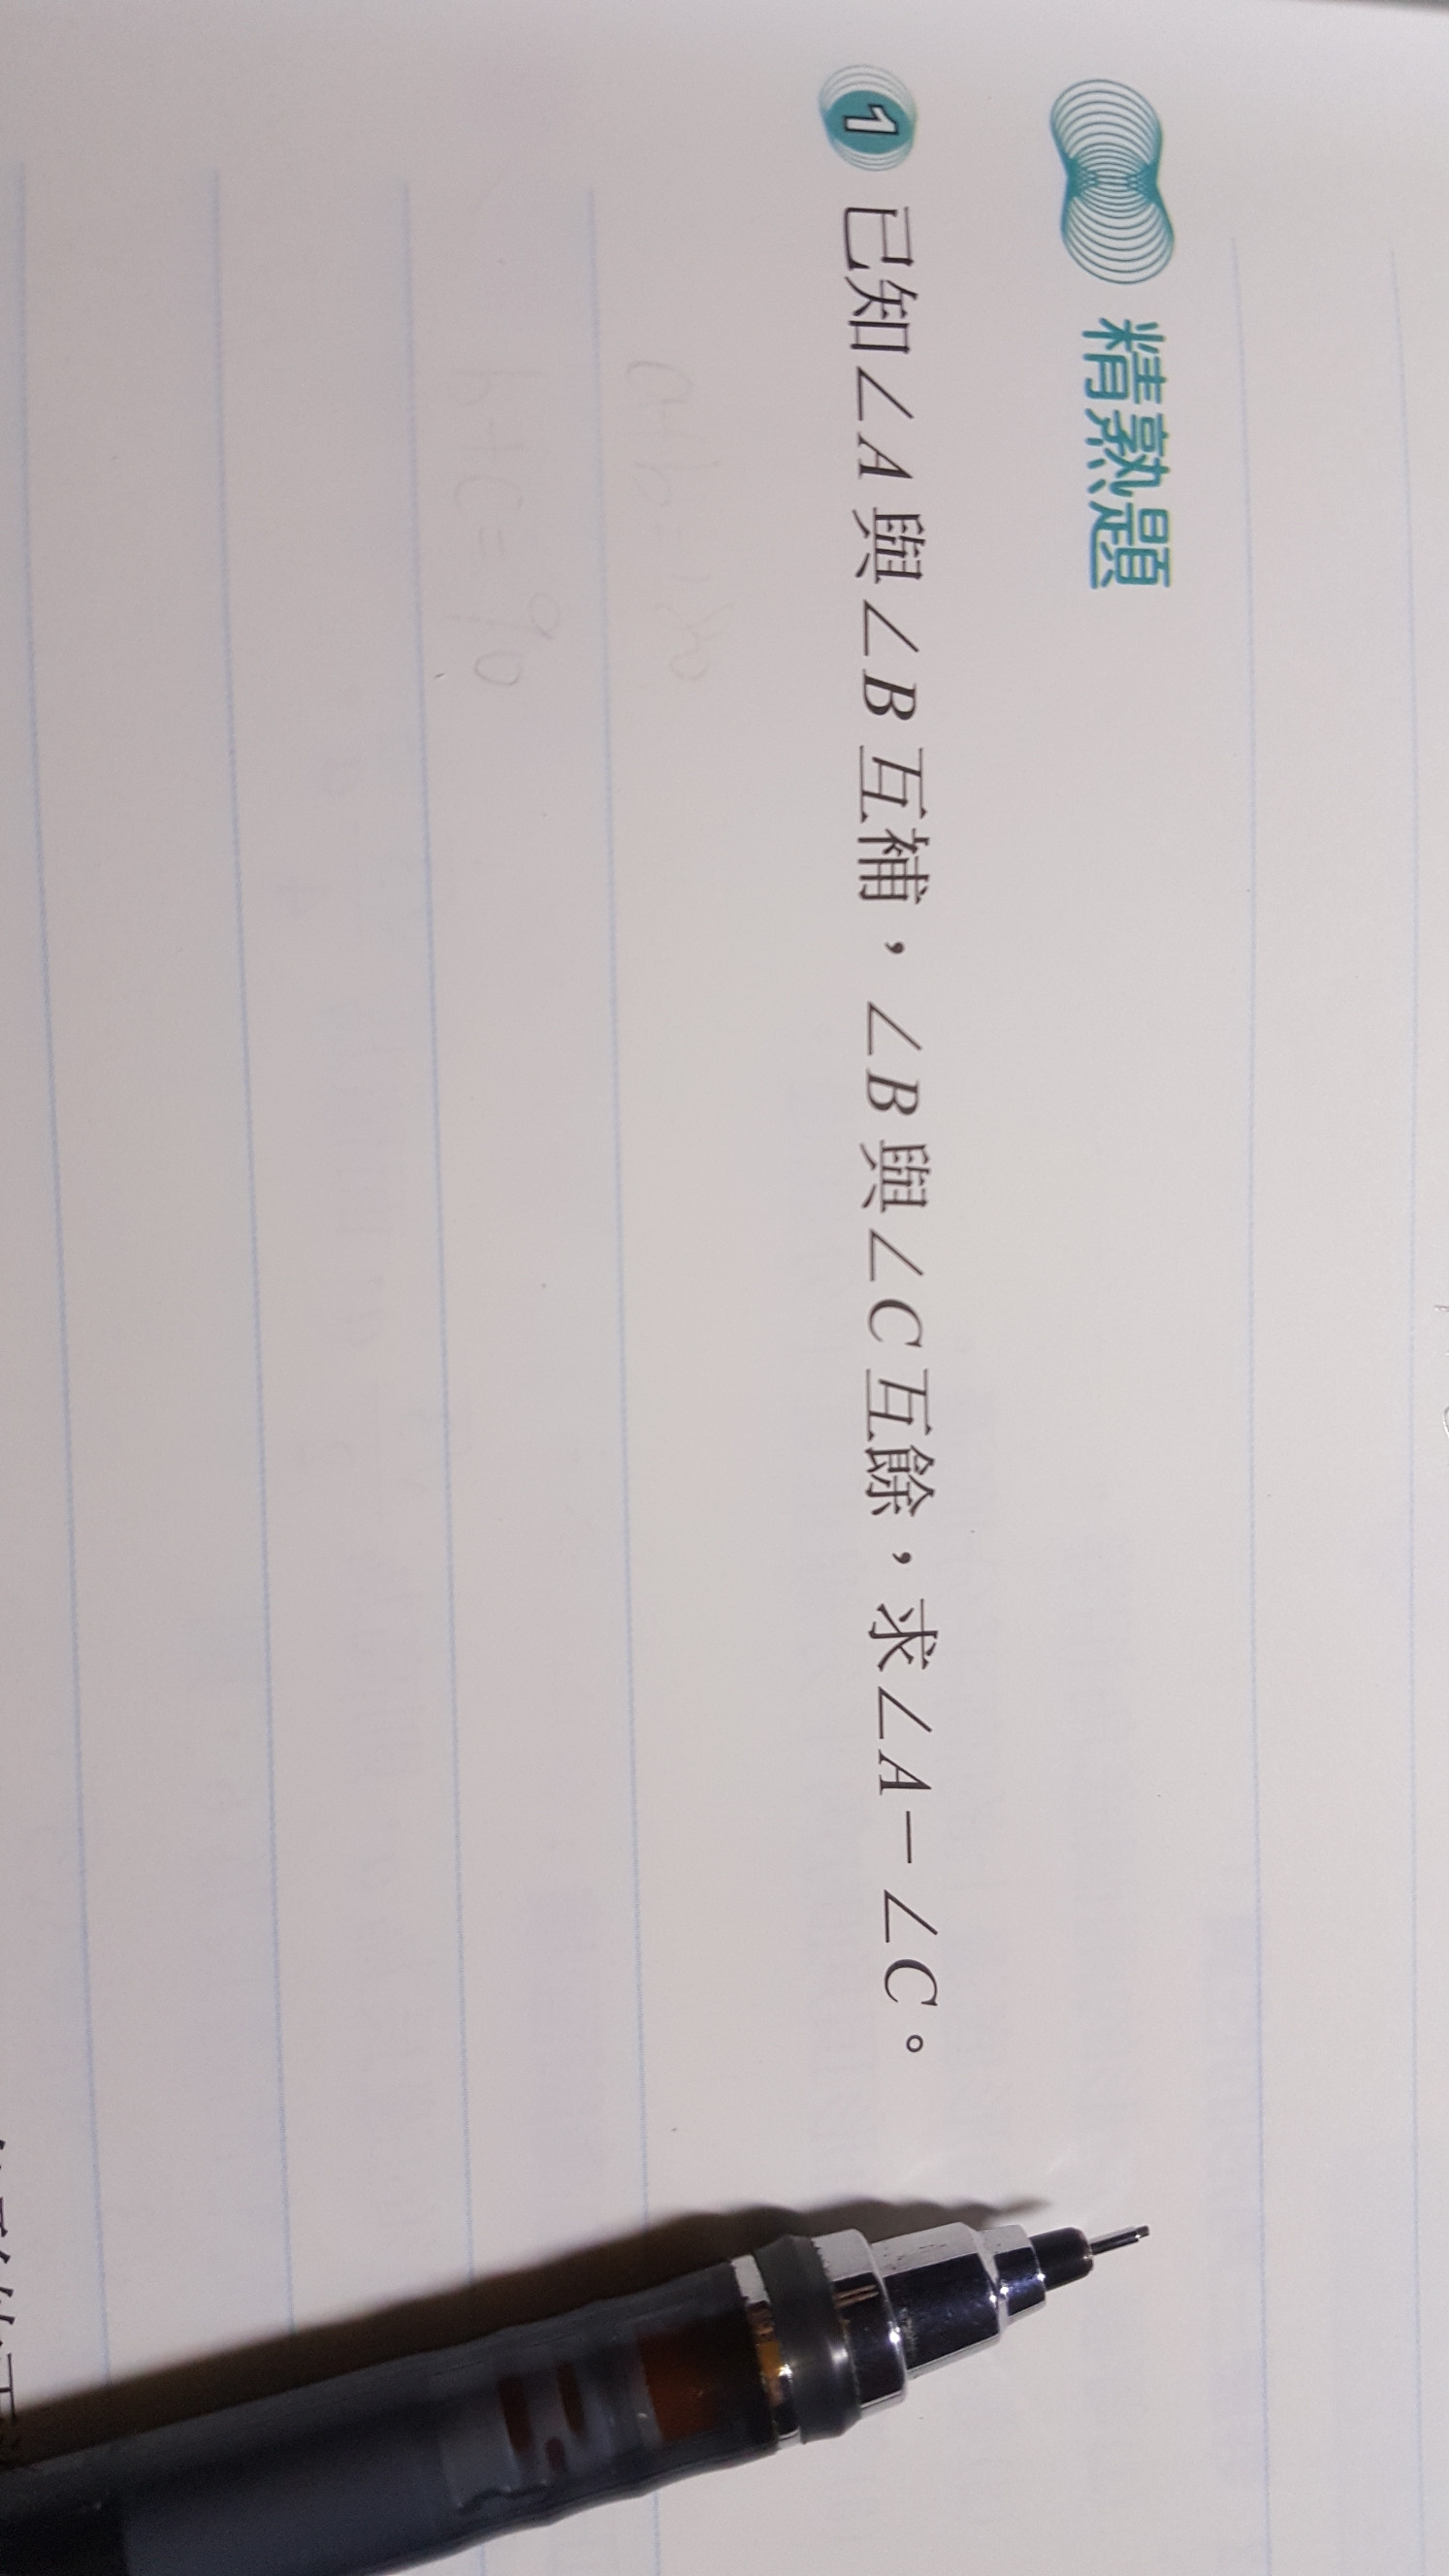 精熟題
1 已知∠A與∠B互補，∠B與∠C互餘，求∠A－∠C。
a+b=180
b+c=90